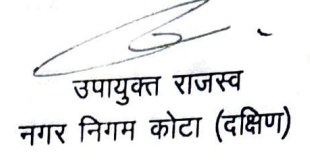 उपायुक्त राजस्व
नगर निगम कोटा (दक्षिण)